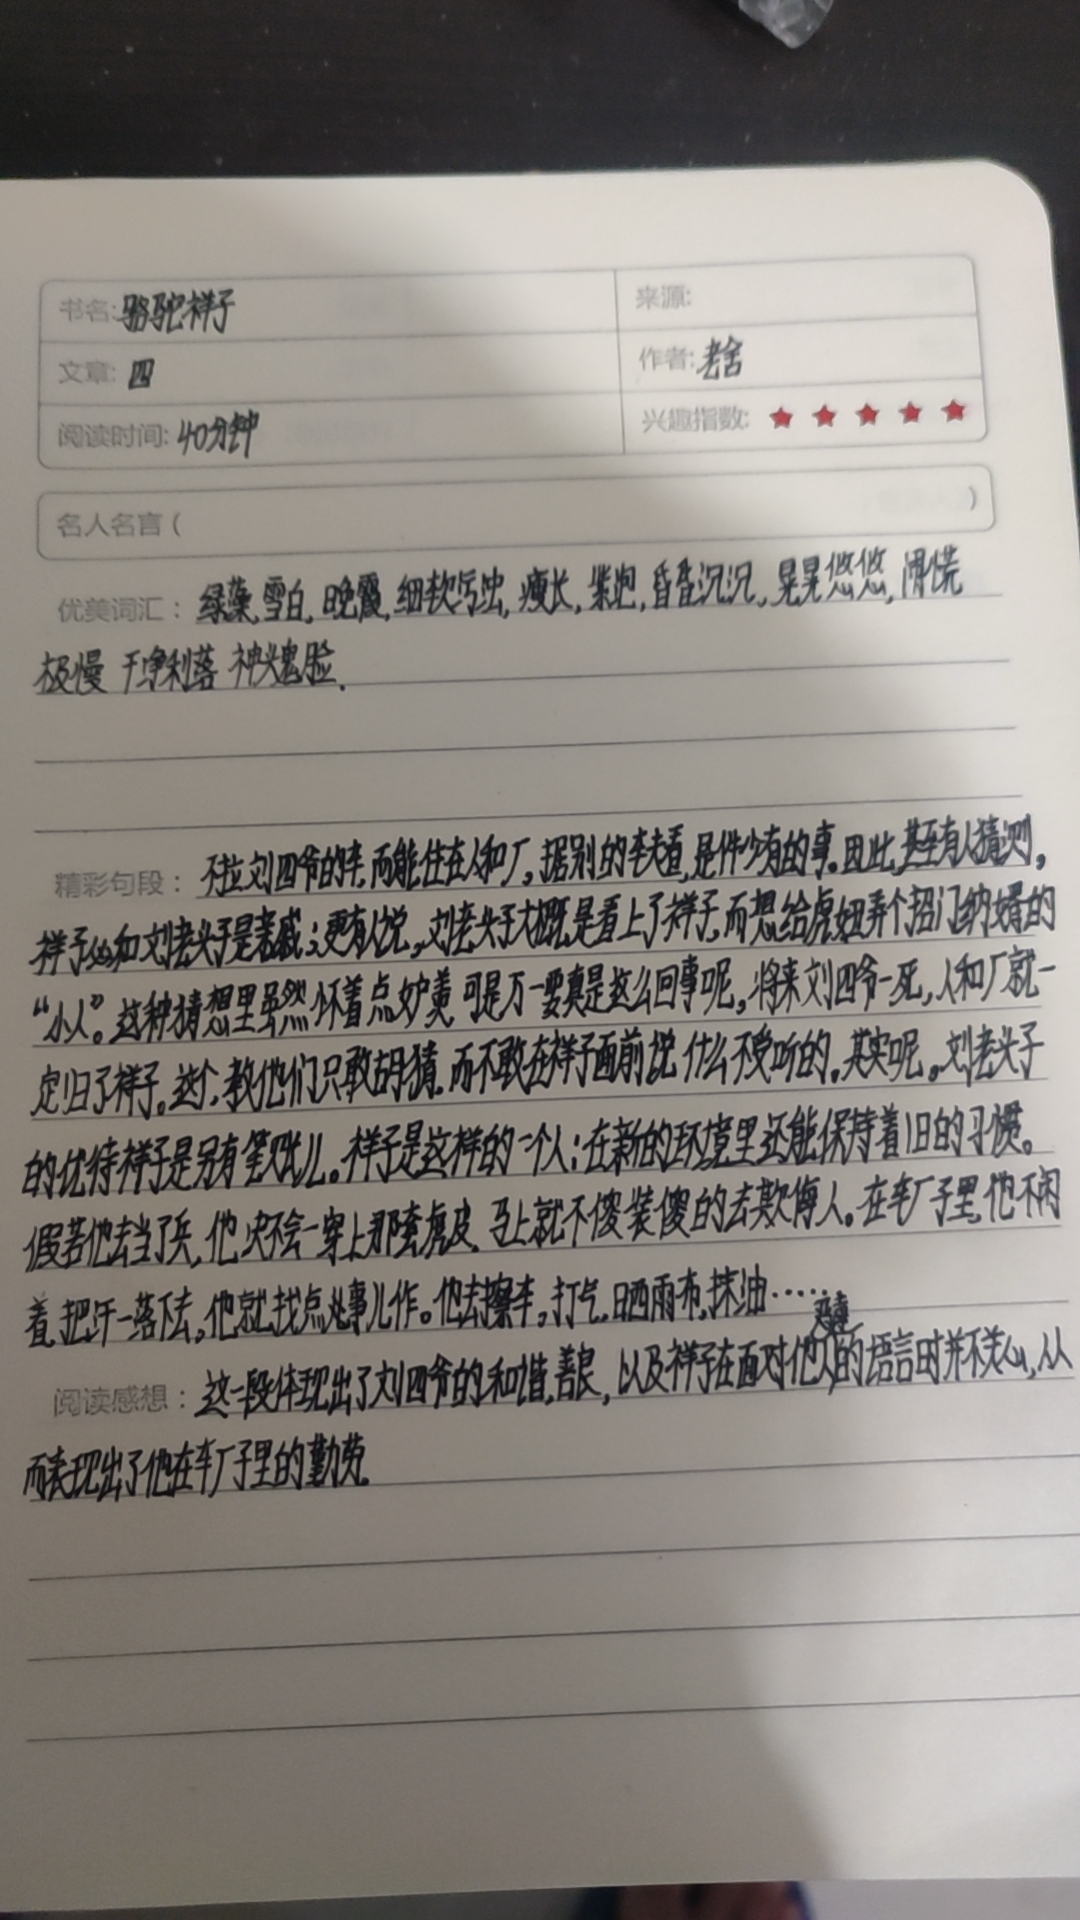 书名:骆驼祥子
来源:
文章:四
作者:老舍
阅读时间:40分钟
兴趣指数:
名人名言( )
优美词汇:绿藻,雪白,晚霞,细软污浊,瘦长,紫泡,昏昏沉沉,晃晃悠悠,闹慌
极慢 干净利落 神头鬼脸.
精彩句段:不拉刘四爷的车,而能住在人和厂,据别的车夫看,是件少有的事。因此,甚至有人猜测,
祥子必和刘老头子是亲戚;更有人说,刘老头子大概是看上了祥子,而想给虎妞弄个招门纳婿的
“小人”。这种猜想里虽然怀着点妒羡,可是万一要真是这么回事呢,将来刘四爷一死,人和厂就一
定归了祥子。这个,教他们只敢胡猜,而不敢在祥子面前说什么不受听的。其实呢。刘老头子
的优待祥子是另有笔账儿。祥子是这样的一个人:在新的环境里还能保持着旧的习惯。
假若他去当了兵,他决不会一穿上那套虎皮,马上就不傻装傻的去欺侮人。在车厂子里,他不闲
着,把汗一落下去,他就找点事儿作。他去擦车,打气,晒雨布,抹油……
阅读感想:这一段体现出了刘四爷的和谐,善良,以及祥子在面对他人的语言时并不关心,从
而表现出了他在车厂子里的勤劳.